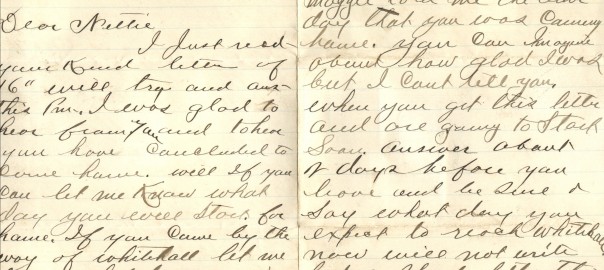 Dear Nettie
I Just recd
your Kind letter of
16" will try and ans
this Pm. I was glad to
hear from you and to hear
you have concluded to
come home. will If you
can let me Know what
day you will Start for
home. If you came by the
way of whitehall let me
maggie told me the
day that you was Coming
home. you Can Imagine
about how glad I was
but I Cant tell you.
when you get this letter
and are going to Start
Soon answer about
2 days before you
leave and be Sure &
Say what day you
expect to reach whitehall
now will not write